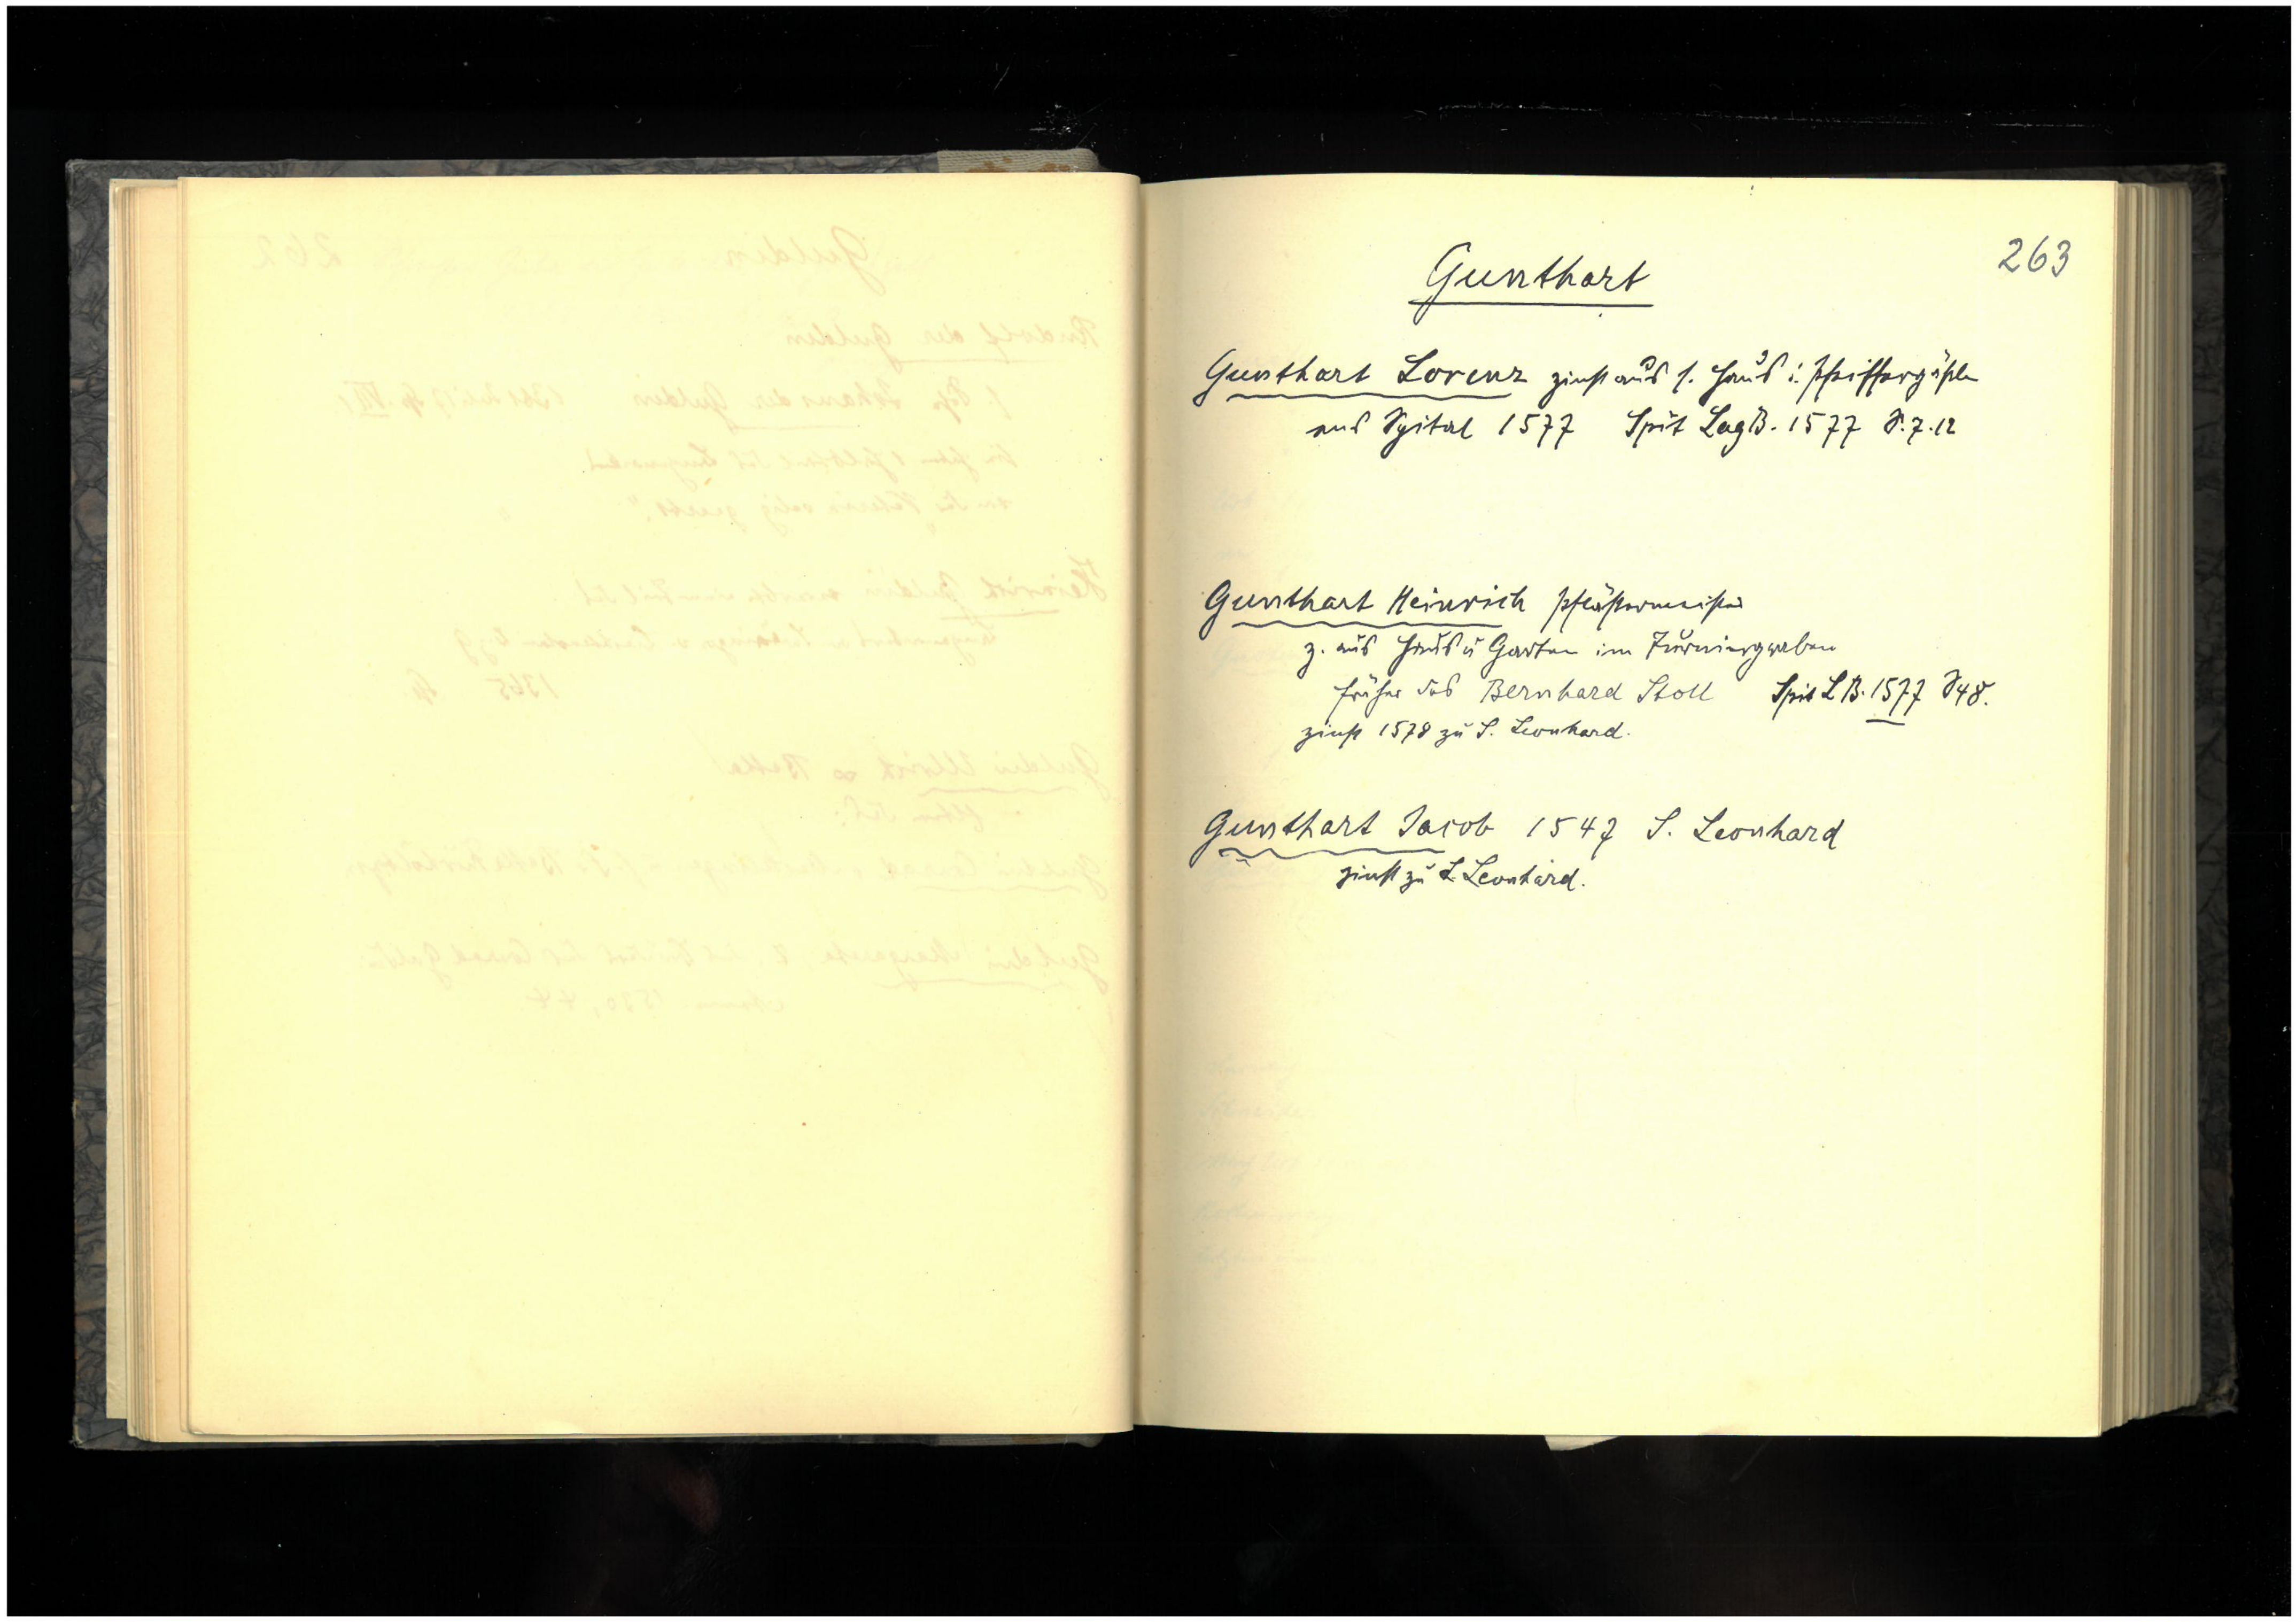 263
Gunthart
Gunthart Lorenz zinst aus s. Haus i. Pfeiffergässle
ans Spital 1577 Spit LagB. 1577 S. 7.12
Gunthart Heinrich Pflästermeister
z. aus Haus u Garten im Zwingergraben
früher des Bernhard Stoll Spit LB. 1577 S 48.
zinst 1578 zu S. Leonhard.
Gunthart Jacob 1547 S. Leonhard
zinst zu S. Leonhard.